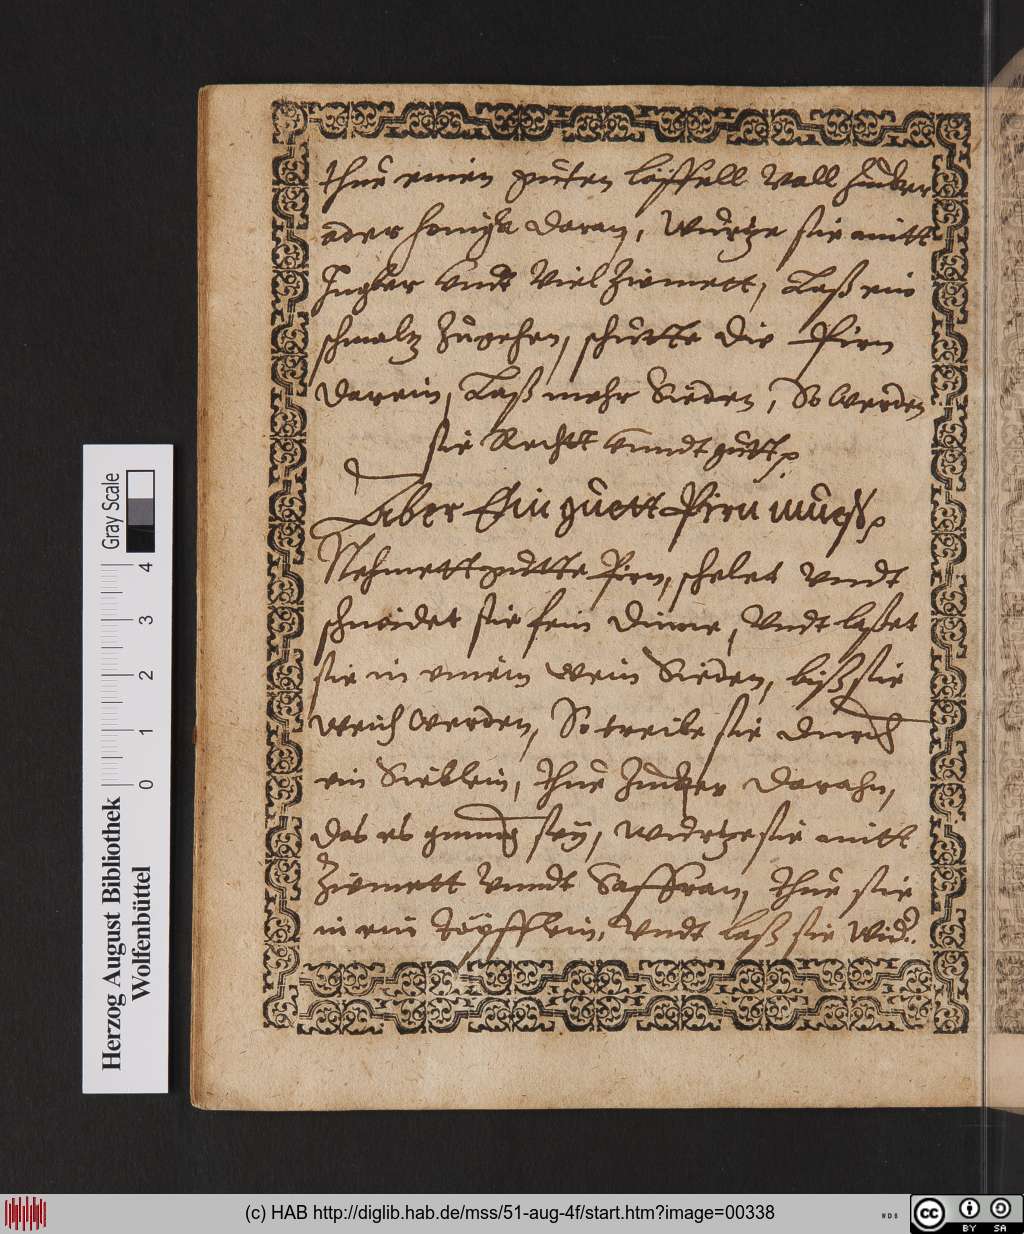 thue einen guten löffell voll Zucker
oder honigk daran, würtze sie mitt
Ingber vndt viel Zimmett, Laß ein
schmaltz Zugehen, schütte die Pirn
darein, Laß mehr Sieden, So werden
sie Rechtt vnndt gutt
Aber Ein guett Pirn mueß
Nehmett gutte Pirn, schelet vndt
schneidet sie fein dünne, vndt laßet
sie in einem wein Sieden, biß sie
weich werden, So treibe sie durch
ein Sieblein, thue Zucker darahn,
das es genung sey, würtze sie mitt
Zimmett vnndt Saffran, thue sie
in ein töpfflein, vndt laß sie wid.
Herzog August Bibliothek
Wolfenbüttel
Gray Scale
0 1 2 3 4
(c) HAB http://diglib.hab.de/mss/51-aug-4f/start.htm?image=00338
WDB
cc BY SA